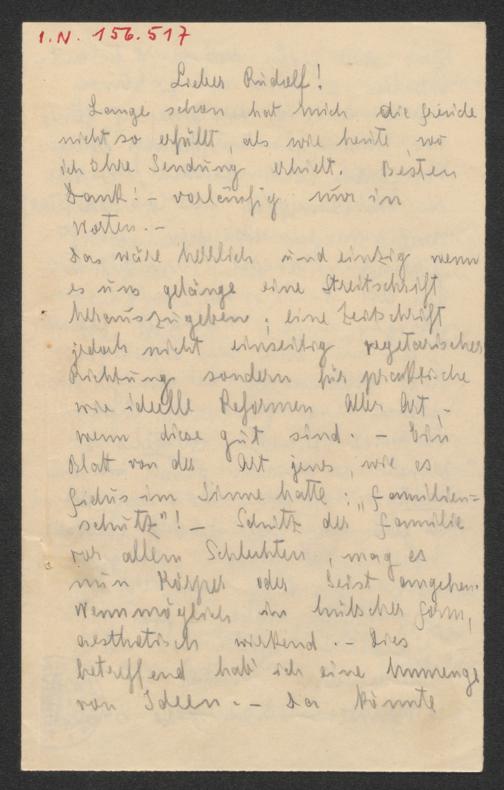 I.N. 156.517
Lieber Rudolf!
Lange schon hat mich die Freude
nicht so erfüllt, als wie heute wo
ich Ihre Sendung erhielt. Besten
Dank! – vorläufig nur in
Worten. –
Das wäre herrlich und einzig wenn
es uns gelänge eine Streitschrift
herauszugeben; eine Zeitschrift
jedoch nicht einseitig vegetarischer
Richtung sondern für praktische
wie ideelle Reformen aller Art, –
wenn diese gut sind. – Ein
Blatt von der Art jenes, wie es
Fidus im Sinne hatte: „Familien=
schutz"! – Schutz der Familie
vor allem Schlechten, mag es
nun Körper oder Geist angehen.
Wenn möglich in hübscher Form,
aesthetisch wirkend. – Dies
betreffend hab' ich eine Unmenge
von Ideen. – Da könnte